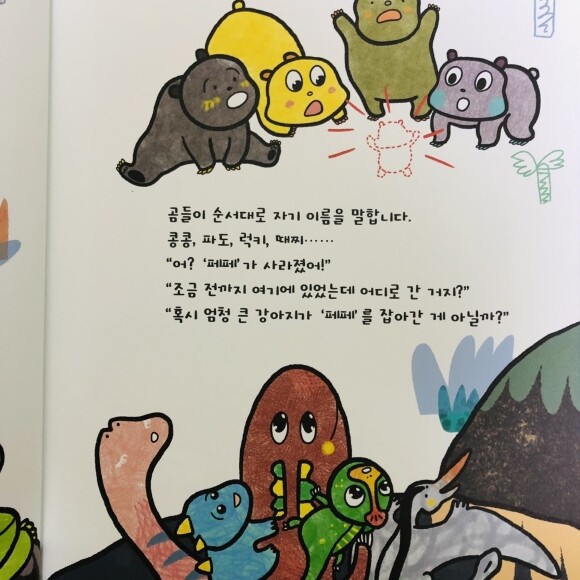 곰들이 순서대로 자기 이름을 말합니다.
콩콩, 파도, 럭키, 때찌……
“어? ‘페페’가 사라졌어!”
“조금 전까지 여기에 있었는데 어디로 간 거지?”
“혹시 엄청 큰 강아지가 ‘페페’를 잡아간 게 아닐까?”